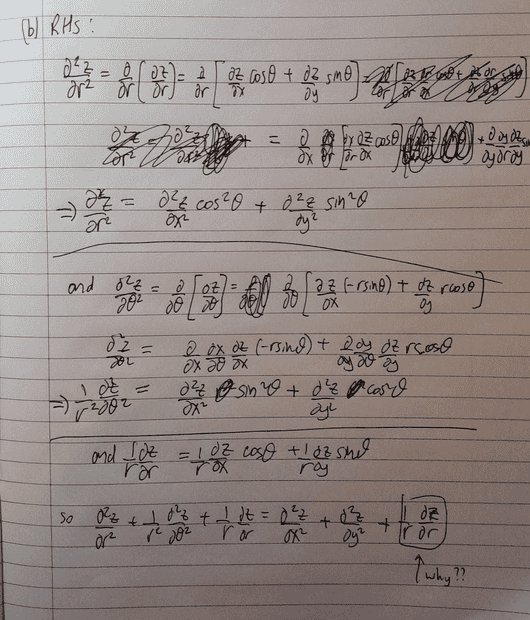 (b) RHS:
∂²z/∂r² = ∂/∂r [∂z/∂r] = ∂/∂r [∂z/∂x cosθ + ∂z/∂y sinθ]
= ∂/∂x ∂x/∂r ∂z/∂x cosθ + ∂/∂y ∂y/∂r ∂z/∂y
⇒ ∂²z/∂r² = ∂²z/∂x² cos²θ + ∂²z/∂y² sin²θ
and ∂²z/∂θ² = ∂/∂θ [∂z/∂θ] = ∂/∂θ [∂z/∂x (-rsinθ) + ∂z/∂y rcosθ]
∂²z/∂θ² = ∂/∂x ∂x/∂θ ∂z/∂x (-rsinθ) + ∂/∂y ∂y/∂θ ∂z/∂y rcosθ
⇒ 1/r² ∂z/∂θ² = ∂²z/∂x² sin²θ + ∂²z/∂y² cos²θ
and 1/r ∂z/∂r = 1/r ∂z/∂x cosθ + 1/r ∂z/∂y sinθ
so ∂²z/∂r² + 1/r² ∂²z/∂θ² + 1/r ∂z/∂r = ∂²z/∂x² + ∂²z/∂y² + 1/r ∂z/∂r
↑ why??